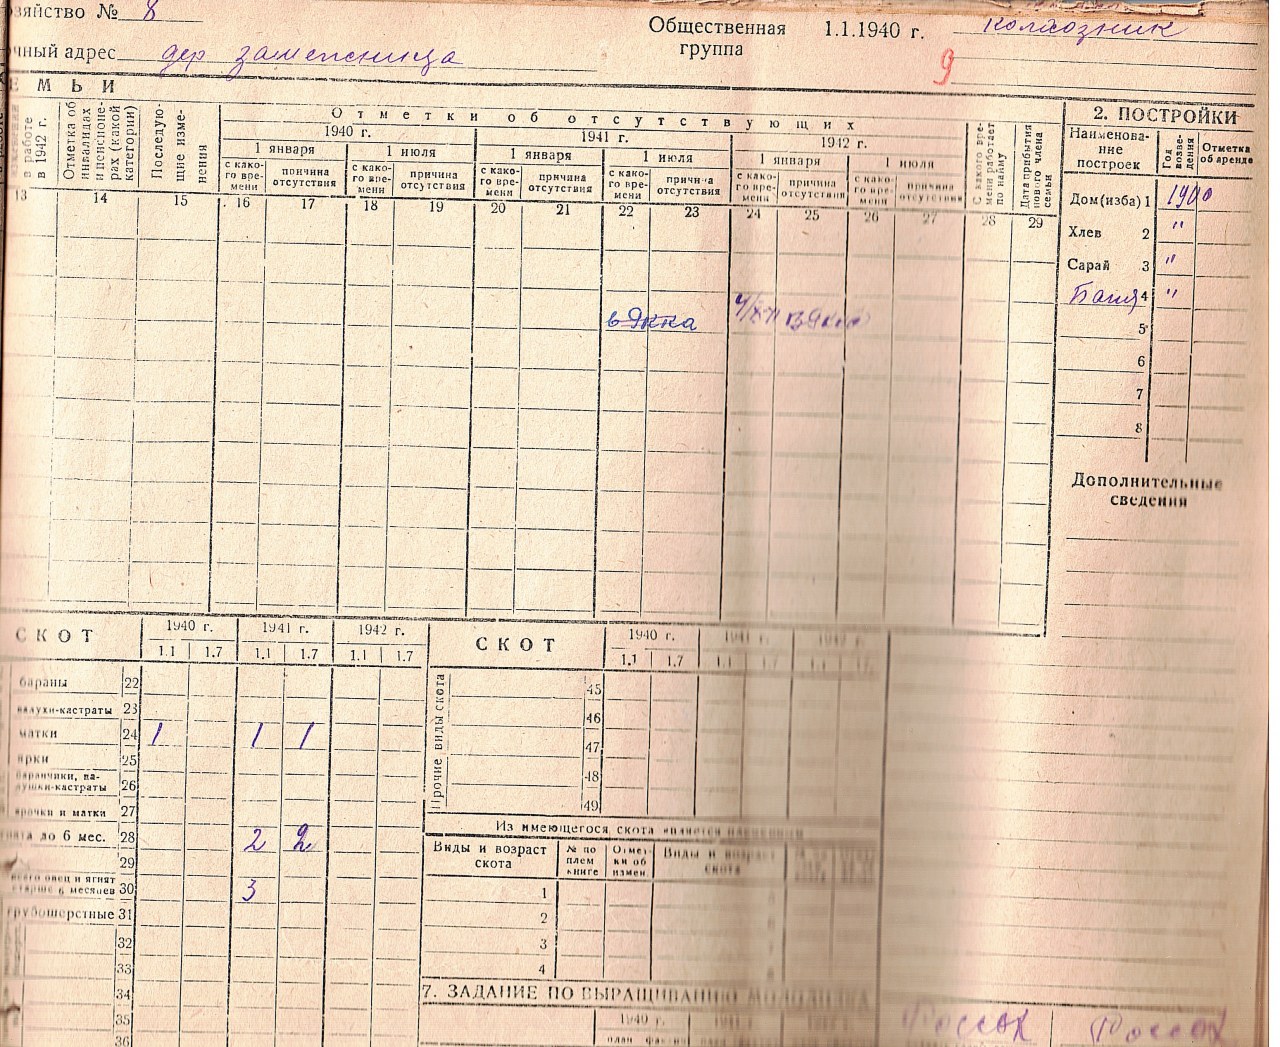 зяйство № 8
Общественная группа 1.1.1940 г. колхозник
чный адрес дер
9
Е М Ь И
в работе в 1942 г.
Отметка об инвалидах и пенсионерах (какой категории)
Последующие изменения
Отметки об отсутствующих
1940 г. 1941 г. 1942 г.
1 января 1 июля 1 января 1 июля 1 января 1 июля
с какого времени причина отсутствия с какого времени причина отсутствия с какого времени причина отсутствия с какого времени причина отсутствия с какого времени причина отсутствия с какого времени причина отсутствия
С какого времени работает по найму
Дата прибытия нового члена семьи
13 14 15 16 17 18 19 20 21 22 23 24 25 26 27 28 29
2. ПОСТРОЙКИ
Наименование построек Год возведения Отметка об аренде
Дом (изба) 1 1900
Хлев 2 "
Сарай 3 "
Баня 4 "
5
6
7
8
Дополнительные сведения
СКОТ 1940 г. 1941 г. 1942 г.
1.1 1.7 1.1 1.7 1.1 1.7
бараны 22
валухи-кастраты 23
матки 24 1 1 1
ярки 25
баранчики, валушки-кастраты 26
ярочки и матки 27
до 6 мес. 28 2 2
29
всего овец и ягнят старше 6 месяцев 30 3
грубошерстные 31
32
33
34
35
36
СКОТ 1940 г. 1941 г. 1942 г.
1.1 1.7 1.1 1.7
Прочие виды скота
45
46
47
48
49
Из имеющегося скота является племенным
Виды и возраст скота № по плем книге Отметки об измен. Виды и возраст скота
1
2
3
4
7. ЗАДАНИЕ ПО ВЫРАЩИВАНИЮ МОЛОДНЯКА
1940 г.
план